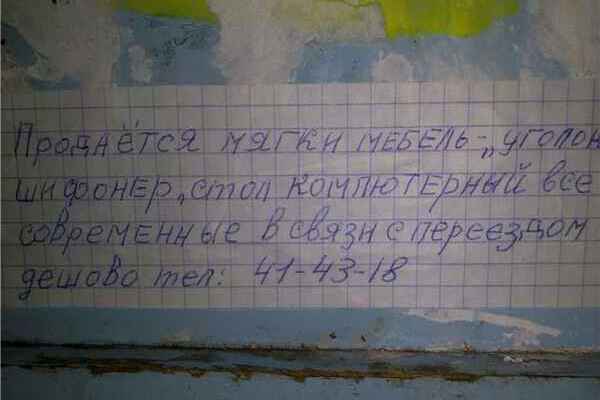 Продаётся мягки мебель-„уголок
шифонер, стол компютерный все
современные в связи с переездом
дешово тел: 41-43-18